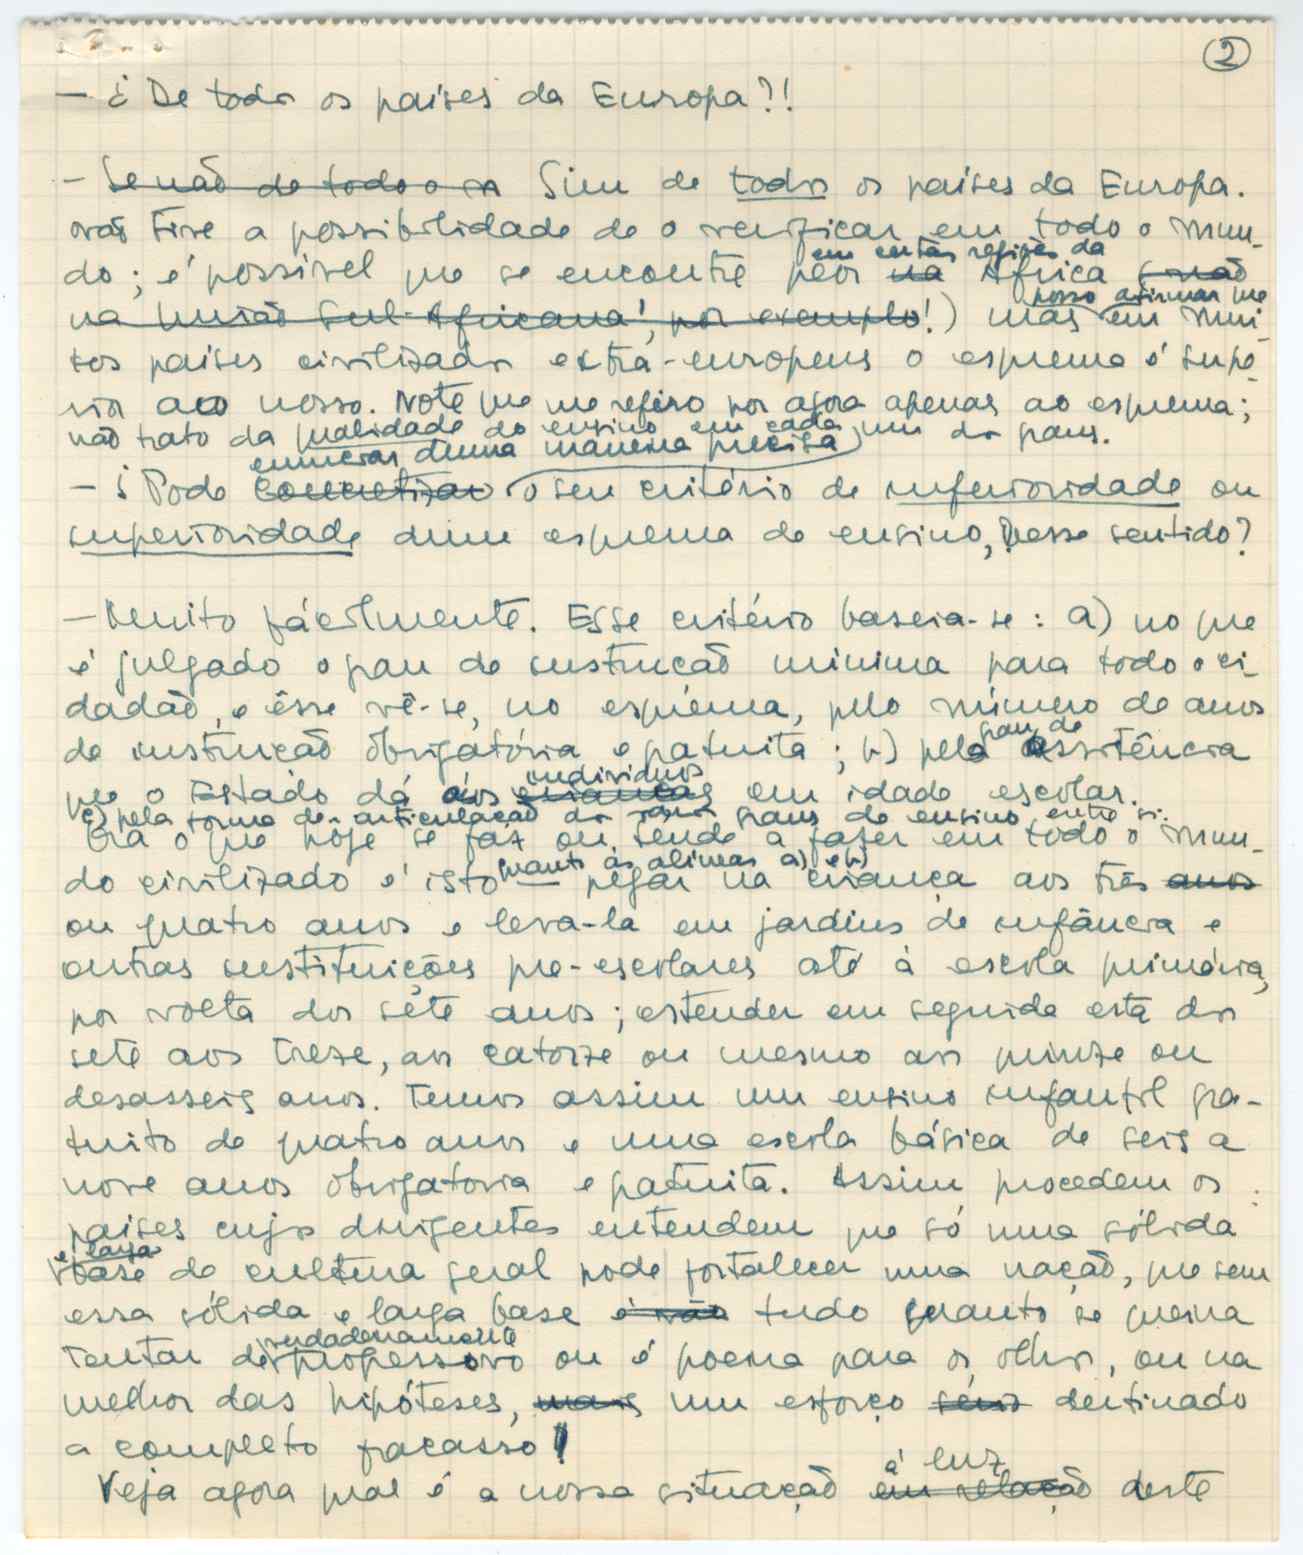 2
— ¿ De todos os países da Europa?!
— Se não de todos os Sim de todos os países da Europa.
não tive a possibilidade de o verificar em todo o mun-
em certas regiões da
do; é possível que se encontre peor na Africa (senão
posso afirmar que
na União Sul-Africana!, por exemplo!) mas em mui-
tos países civilizados extra-europeus o esquema é supe-
rior ao nosso. Note que me refiro por agora apenas ao esquema;
não trato da qualidade do ensino em cada um dos graus.
enumerar duma maneira precisa
— ¿ Pode concretizar o seu critério de inferioridade ou
superioridade dum esquema de ensino, nesse sentido?
— Muito fácilmente. Esse critério baseia-se: a) no que
é julgado o grau de instrução mínima para todo o ci-
dadão, e êsse vê-se, no esquema, pelo número de anos
grau de
de instrução obrigatória e gratuita; b) pelo assistência
individuos
que o Estado dá aos crianças em idade escolar.
c) pela forma de articulação dos vários graus de ensino entre si.
Ora o que hoje se faz ou tende a fazer em todo o mun-
quanto às alineas a) e b)
do civilizado é isto — pegar na criança aos três anos
ou quatro anos e leva-la em jardins de infância e
outras instituições pre-escolares até à escola primária,
por volta dos sete anos; estender em seguida esta dos
sete aos treze, aos catorze ou mesmo aos quinze ou
desasseis anos. Temos assim um ensino infantil gra-
tuito de quatro anos e uma escola básica de seis a
nove anos obrigatoria e gratuita. Assim procedem os
paises cujos dirigentes entendem que só uma sólida
e larga
base de cultura geral pode fortalecer uma nação, que sem
essa sólida e larga base é vão tudo quanto se queira
verdadeiramente
tentar de progressivo ou é poeira para os olhos, ou na
melhor das hipóteses, mais um esforço sério destinado
a completo fracasso!
à luz
Veja agora qual é a nossa situação em relação deste